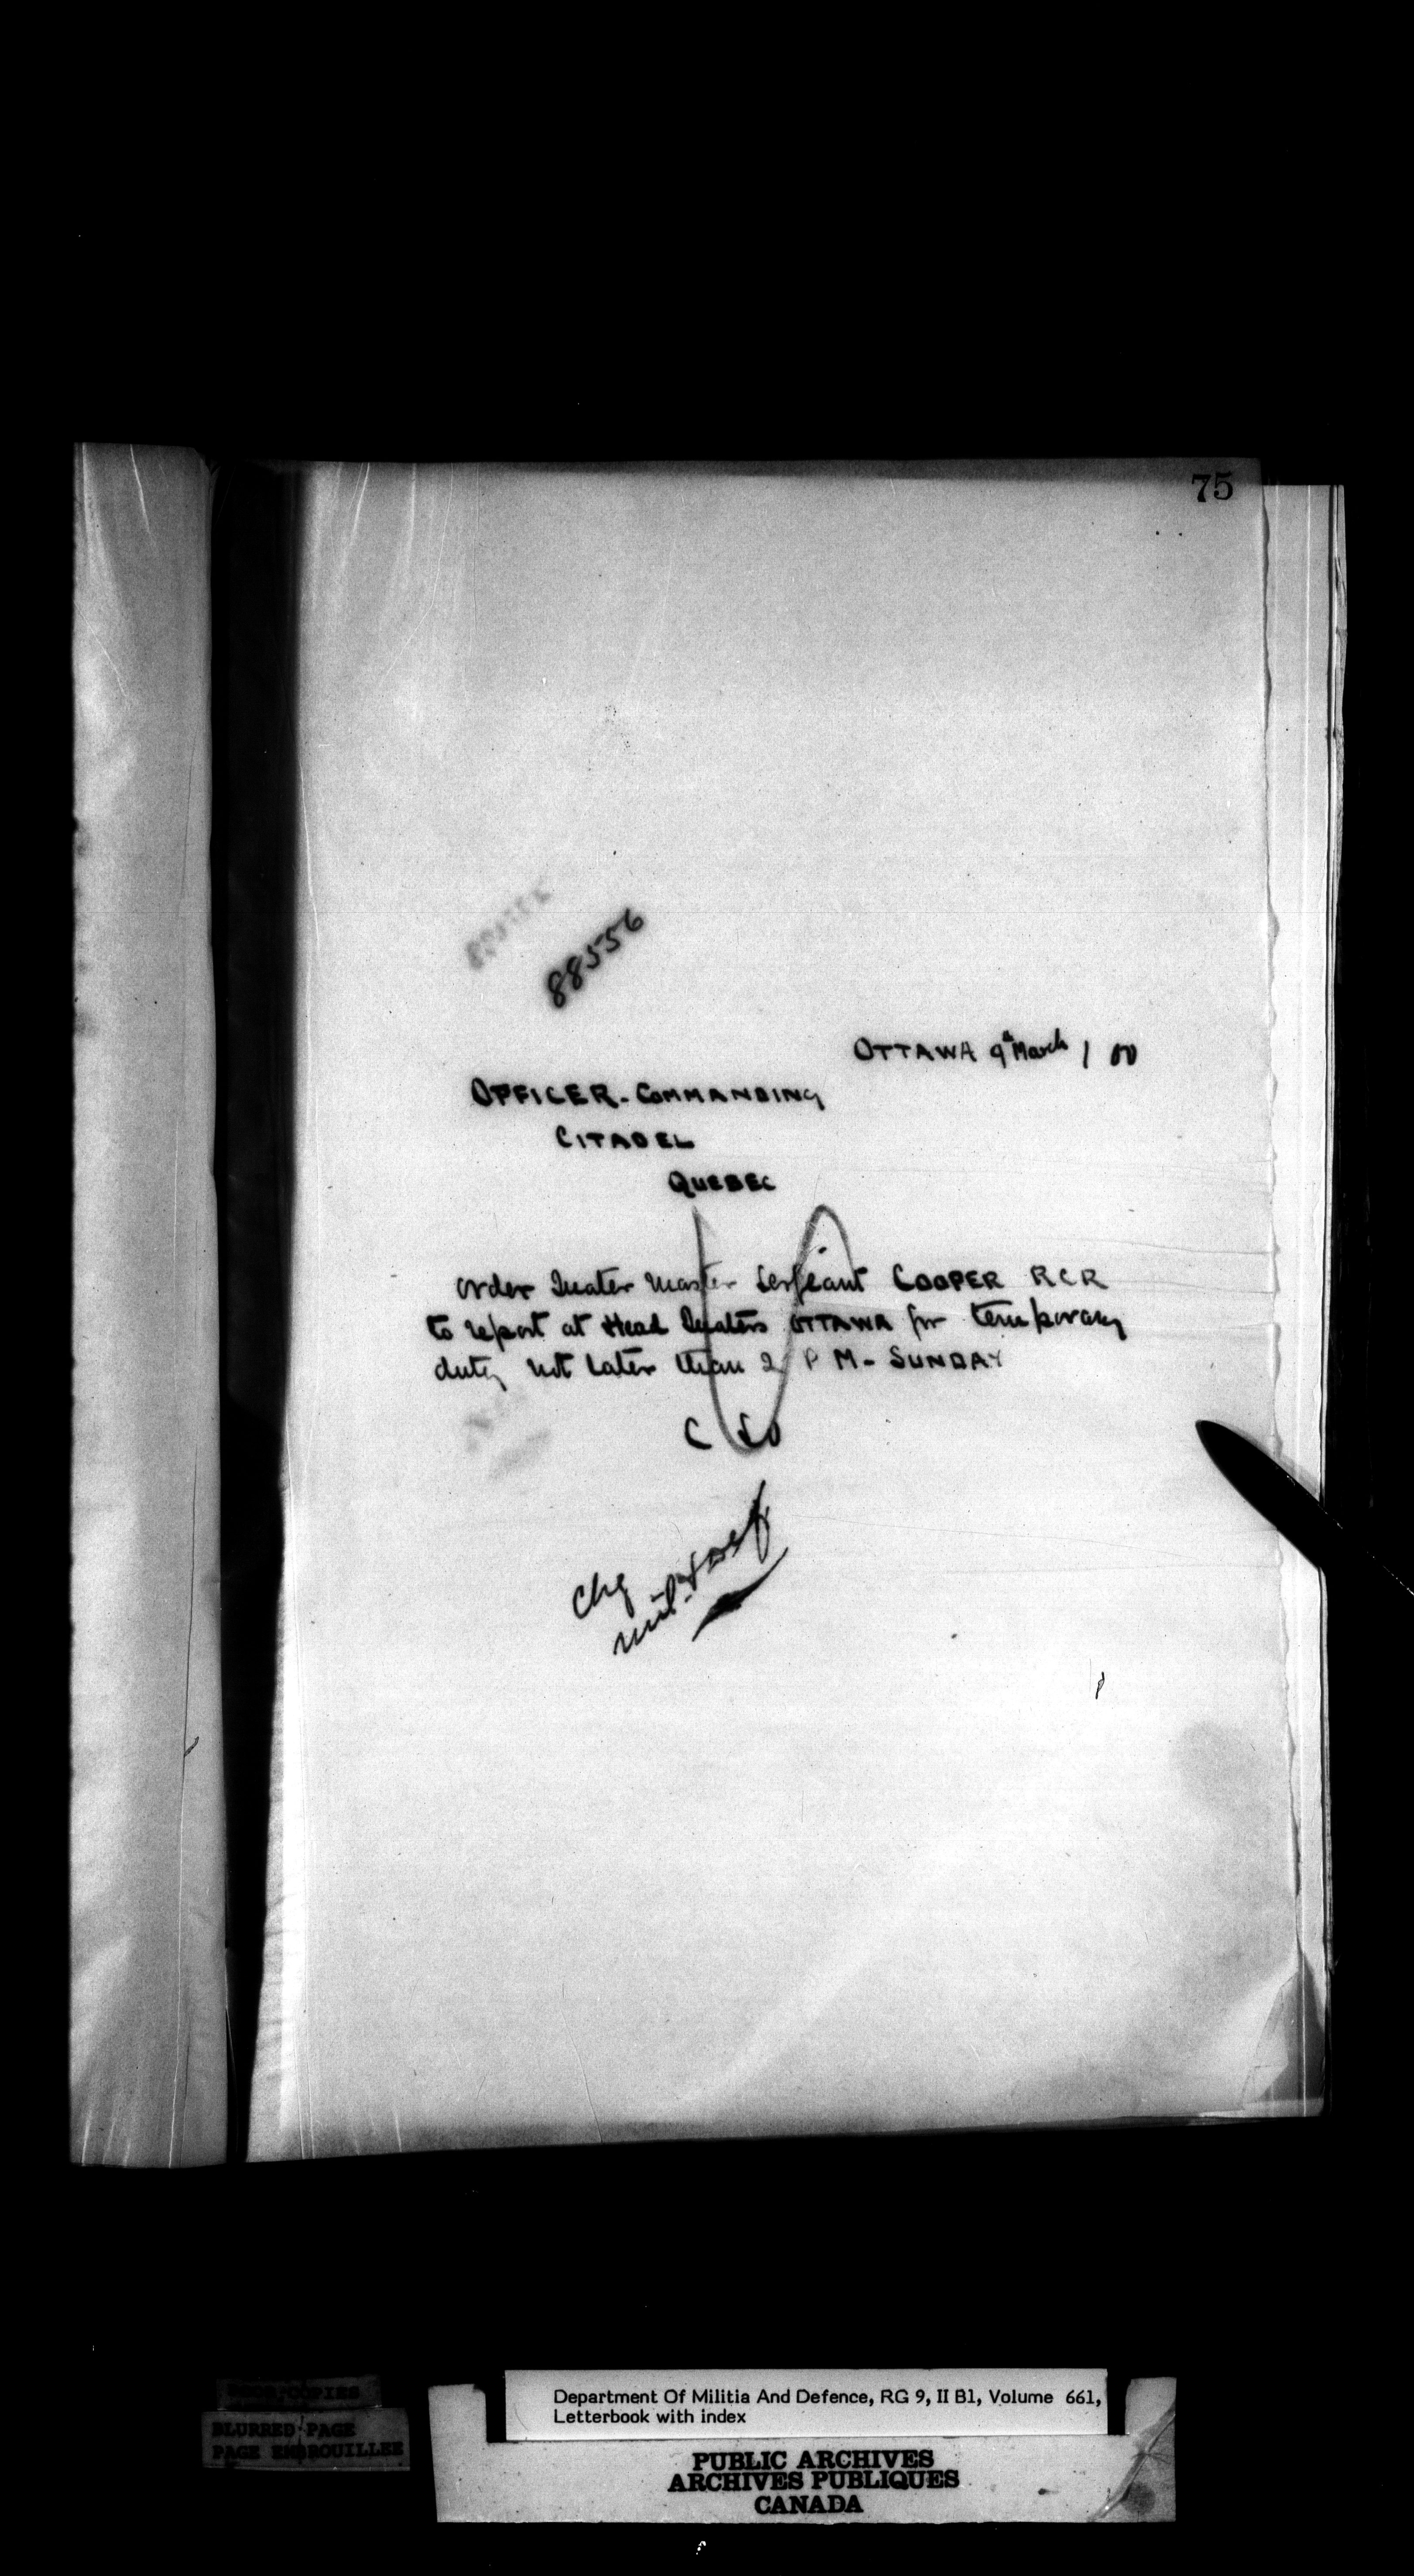 75
88556
OTTAWA 9th March / 00
OFFICER-COMMANDING
CITADEL
QUEBEC
Order Quater Master Serjeant COOPER RCR
to report at Head Quaters OTTAWA for temporary
duty not later than 2 PM - SUNDAY
C SO
Chg
Mil & Def
Department Of Militia And Defence, RG 9, II B1, Volume 661,
Letterbook with index
POOR COPIES
BLURRED PAGE
PAGE EMBROUILLEE
PUBLIC ARCHIVES
ARCHIVES PUBLIQUES
CANADA